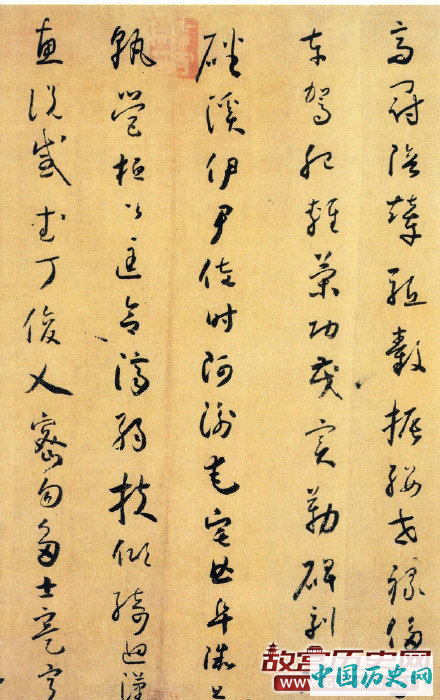 高冠陪輦驅轂振纓世祿侈
車駕肥輕策功茂實勒碑刻
磻溪伊尹佐時阿衡奄宅曲阜微旦
孰營桓公匡合濟弱扶傾綺迴漢
惠說感武丁俊乂密勿多士寔寧
故宫历史网
中国历史网